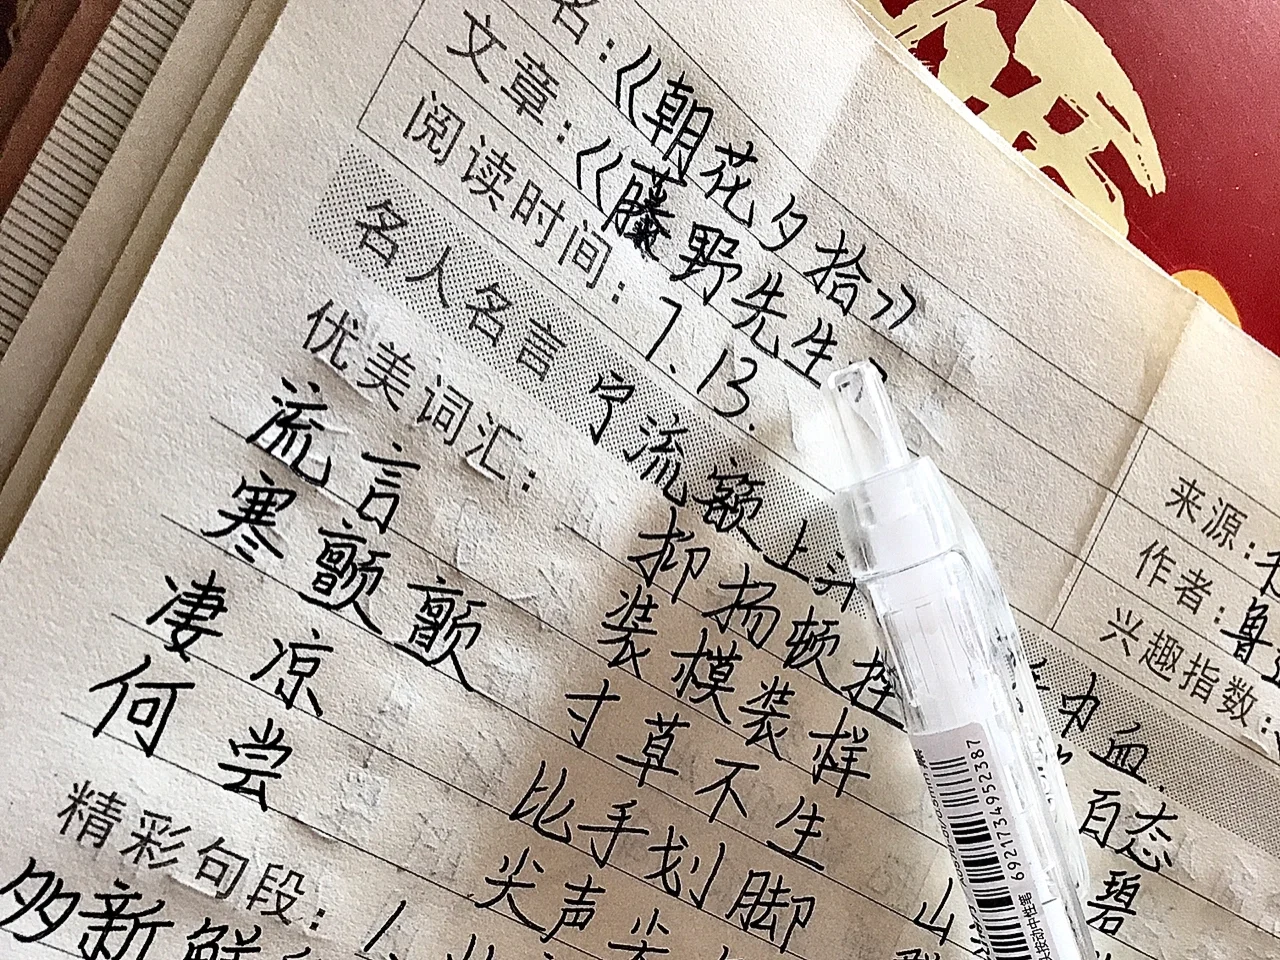 名：《朝花夕拾》
文章：《藤野先生》
阅读时间：7.13.
名人名言 宁流额上汗
优美词汇：
流言 抑扬顿挫
寒颤颤 装模装样
凄凉 寸草不生 百态
何尝 比手划脚 山 碧
尖声尖
精彩句段：1
多新鲜
来源：
作者：鲁
兴趣指数：
中血
6921734952387
按动中性笔